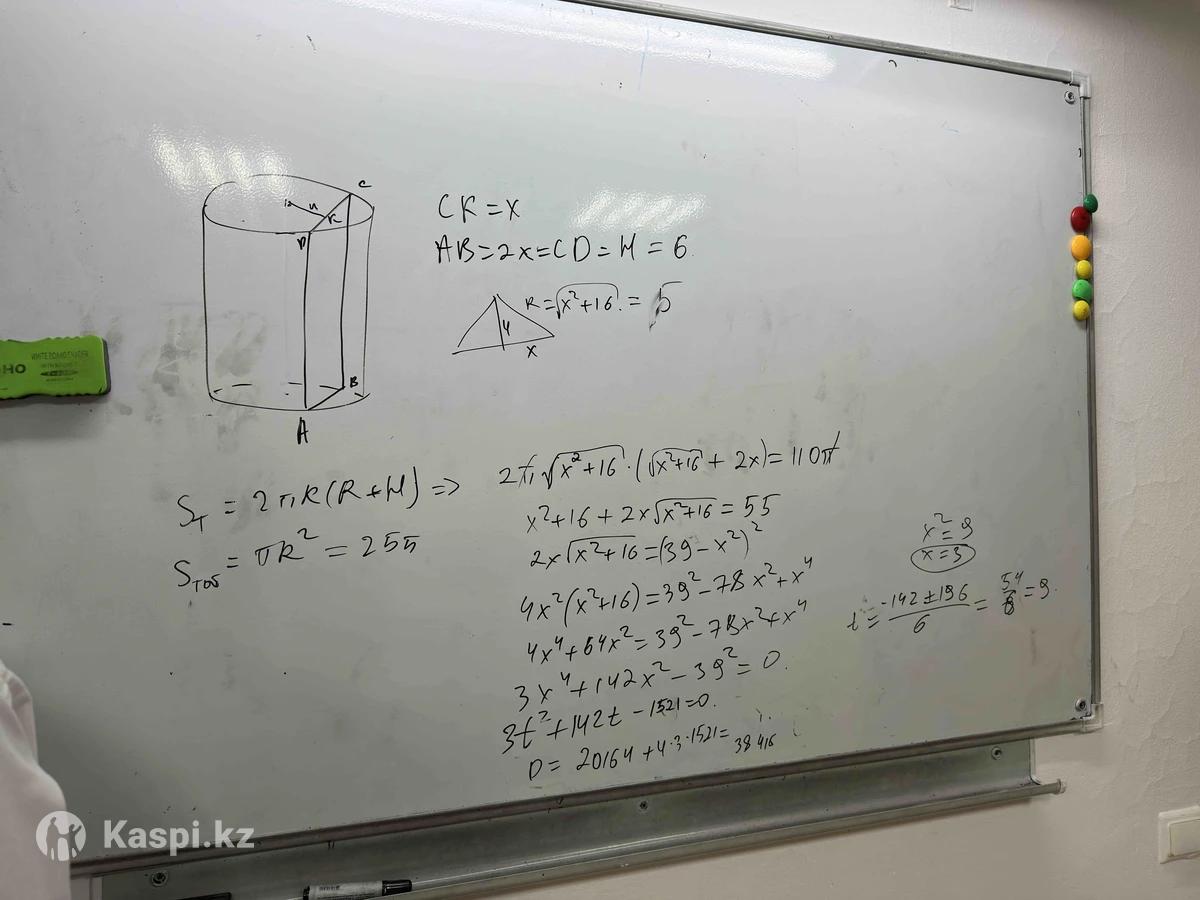 C
K
D
B
A
CK = x
AB = 2x = CD = H = 6
R = √x²+16 = 5
4
x
S_T = 2πR(R+H) =>
S_ТОБ = πR² = 25π
2π√x²+16 · (√x²+16 + 2x) = 110π
x²+16 + 2x√x²+16 = 55
2x√x²+16 = (39 - x²)²
4x²(x²+16) = 39² - 78x² + x⁴
4x⁴ + 64x² = 39² - 78x² + x⁴
3x⁴ + 142x² - 39² = 0.
3t² + 142t - 1521 = 0.
D = 20164 + 4·3·1521 = 38416
x² = 9
x = 3
t = -142 ± 196 / 6 = 54 / 6 = 9.
WHITEBOARD ERASER
Kaspi.kz